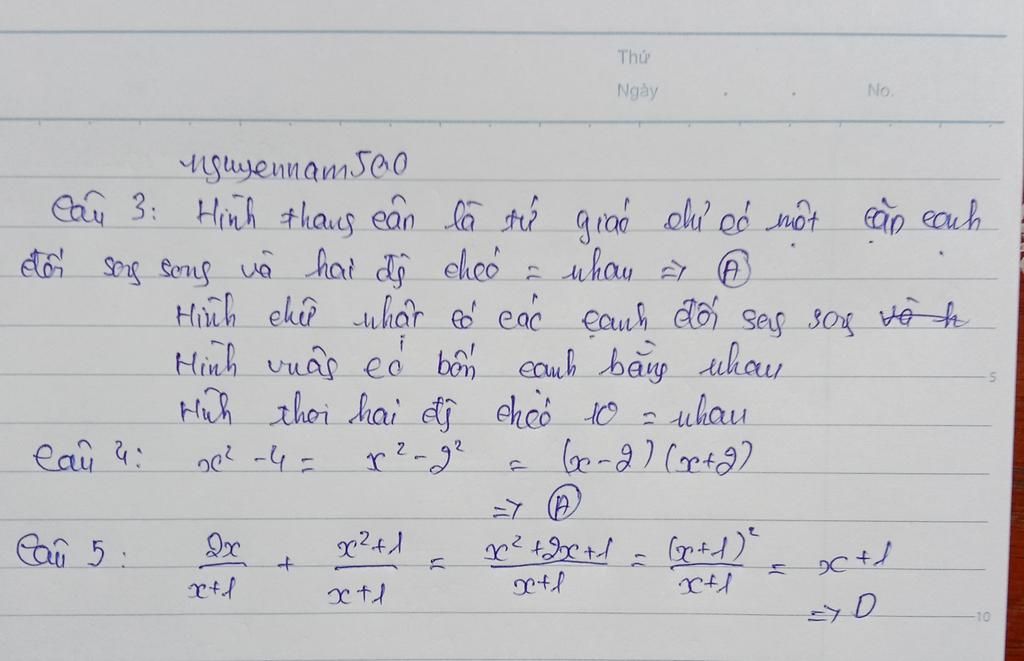 Thứ
Ngày . . No.
nguyennam500
Câu 3: Hình thang cân là tứ giác chỉ có một cặp cạnh
đối sog song và hai đg chéo = nhau => (A)
Hình chữ nhật có các cạnh đối sog song
Hình vuôg có bốn cạnh bằng nhau
5
Hình thoi hai đg chéo = nhau
Câu 4: x² - 4 = x² - 2² = (x-2)(x+2)
=> (A)
Câu 5: 2x/(x+1) + (x²+1)/(x+1) = (x²+2x+1)/(x+1) = (x+1)²/(x+1) = x+1
=> D
10